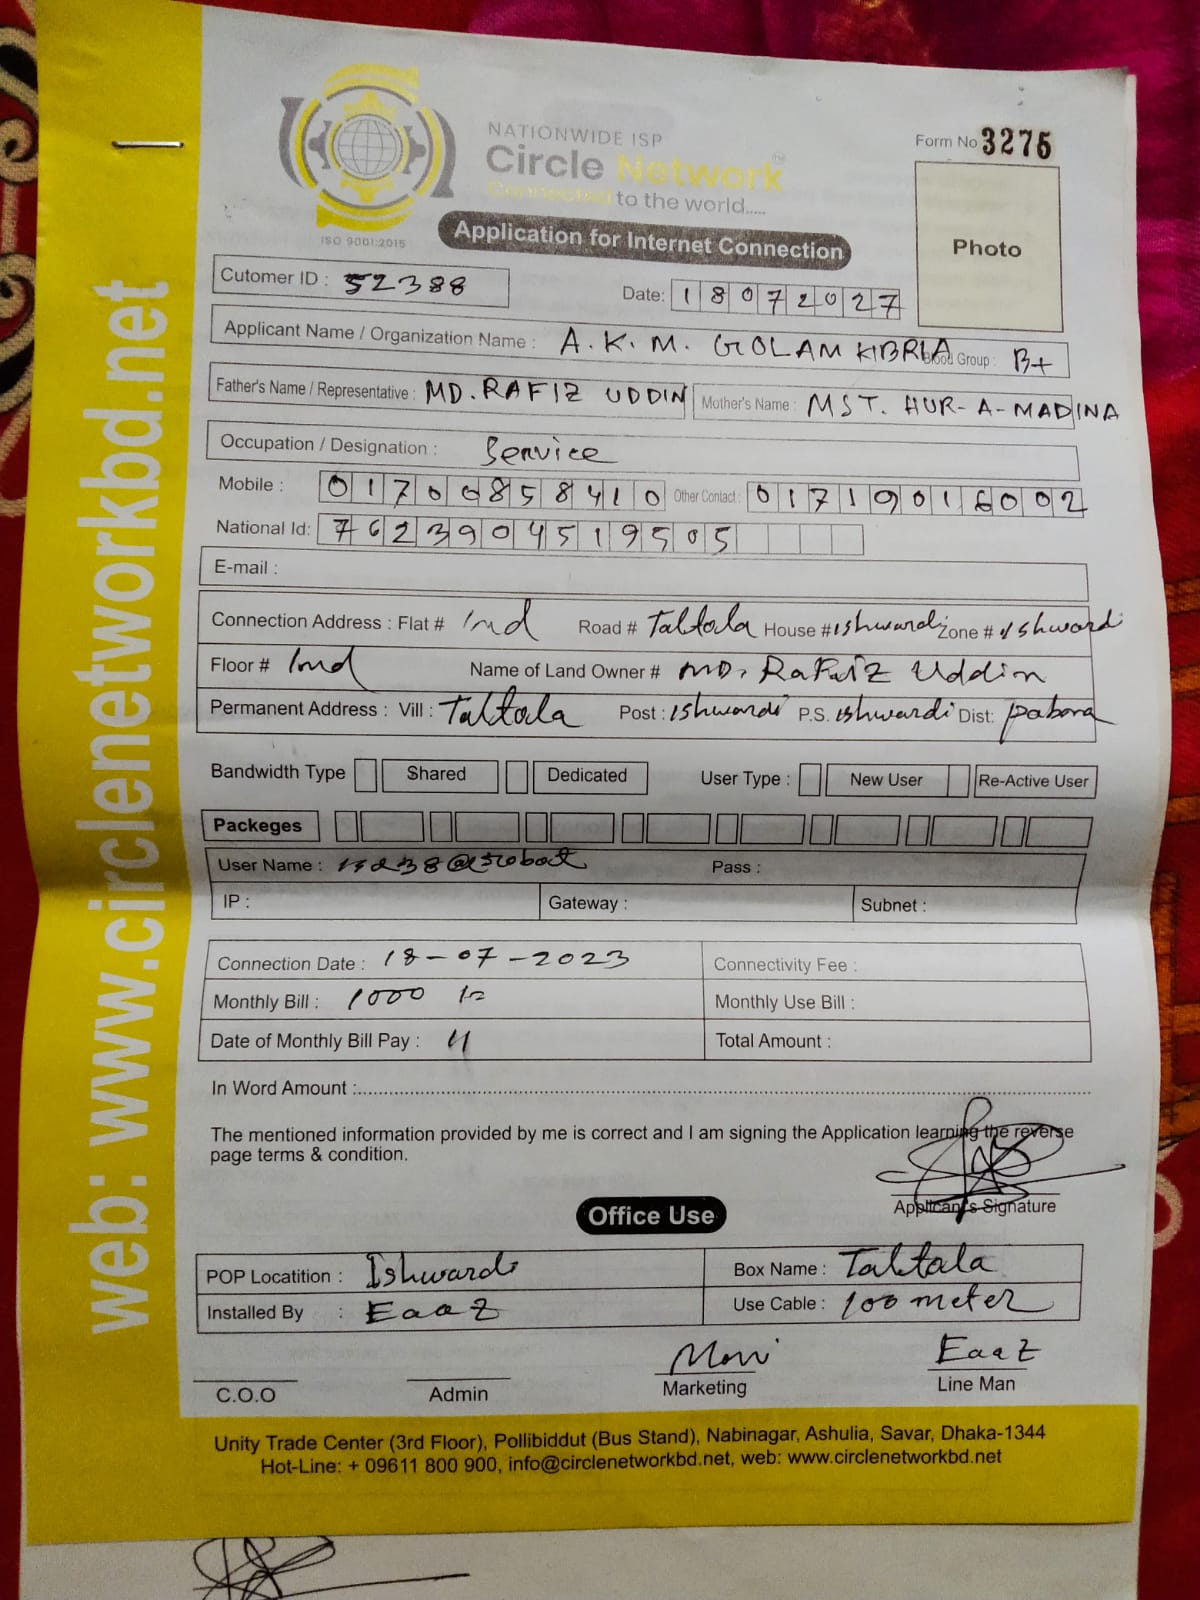 web: www.circlenetworkbd.net
NATIONWIDE ISP
Circle Network™
Connected to the world.....
ISO 9001:2015
Application for Internet Connection
Form No 3275
Photo
Cutomer ID : 52388
Date: 18072027
Applicant Name / Organization Name : A.K.M. GOLAM KIBRIA Blood Group : B+
Father's Name / Representative : MD. RAFIZ UDDIN Mother's Name : MST. HUR-A-MADINA
Occupation / Designation : Service
Mobile : 01700858410 Other Contact : 01719016002
National Id: 7623904519505
E-mail :
Connection Address : Flat # Ind Road # Taltola House # Ishwardi Zone # Ishwordi
Floor # Ind Name of Land Owner # MD. Rafiz Uddin
Permanent Address : Vill : Taltola Post : Ishwardi P.S. Ishwardi Dist: pabona
Bandwidth Type Shared Dedicated User Type : New User Re-Active User
Packeges
User Name : Pass :
IP : Gateway : Subnet :
Connection Date : 18-07-2023 Connectivity Fee :
Monthly Bill : 1000 Monthly Use Bill :
Date of Monthly Bill Pay : Total Amount :
In Word Amount :
The mentioned information provided by me is correct and I am signing the Application learning the reverse
page terms & condition.
Applicant's Signature
Office Use
POP Locatition : Ishwardi Box Name : Taltala
Installed By : Eaaz Use Cable : 100 meter
Moni Eaaz
C.O.O Admin Marketing Line Man
Unity Trade Center (3rd Floor), Pollibiddut (Bus Stand), Nabinagar, Ashulia, Savar, Dhaka-1344
Hot-Line: + 09611 800 900, info@circlenetworkbd.net, web: www.circlenetworkbd.net